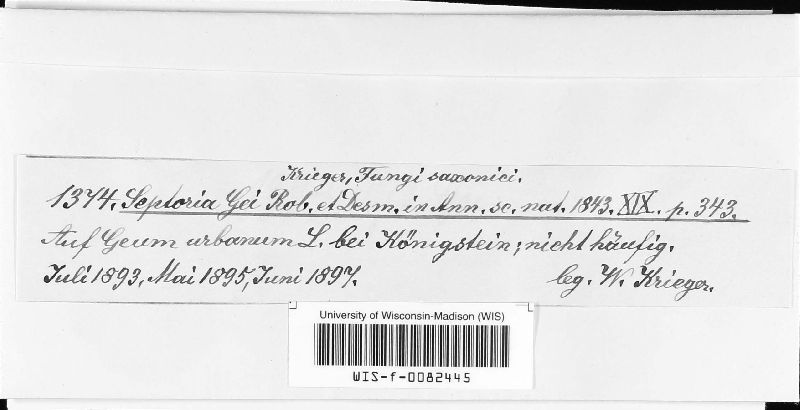 Krieger, Fungi saxonici.
1374. Septoria Gei Rob. et Desm. in Ann. sc. nat. 1843. XIX. p. 343.
Auf Geum urbanum L. bei Königstein; nicht häufig.
Juli 1893, Mai 1895, Juni 1897.
leg. W. Krieger.
University of Wisconsin-Madison (WIS)
WIS-f-0082445